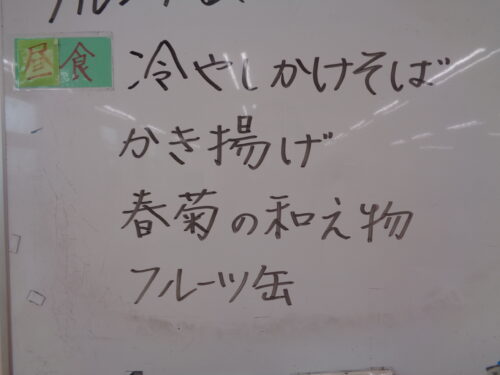 昼食 冷やしかけそば
かき揚げ
春菊の和え物
フルーツ缶